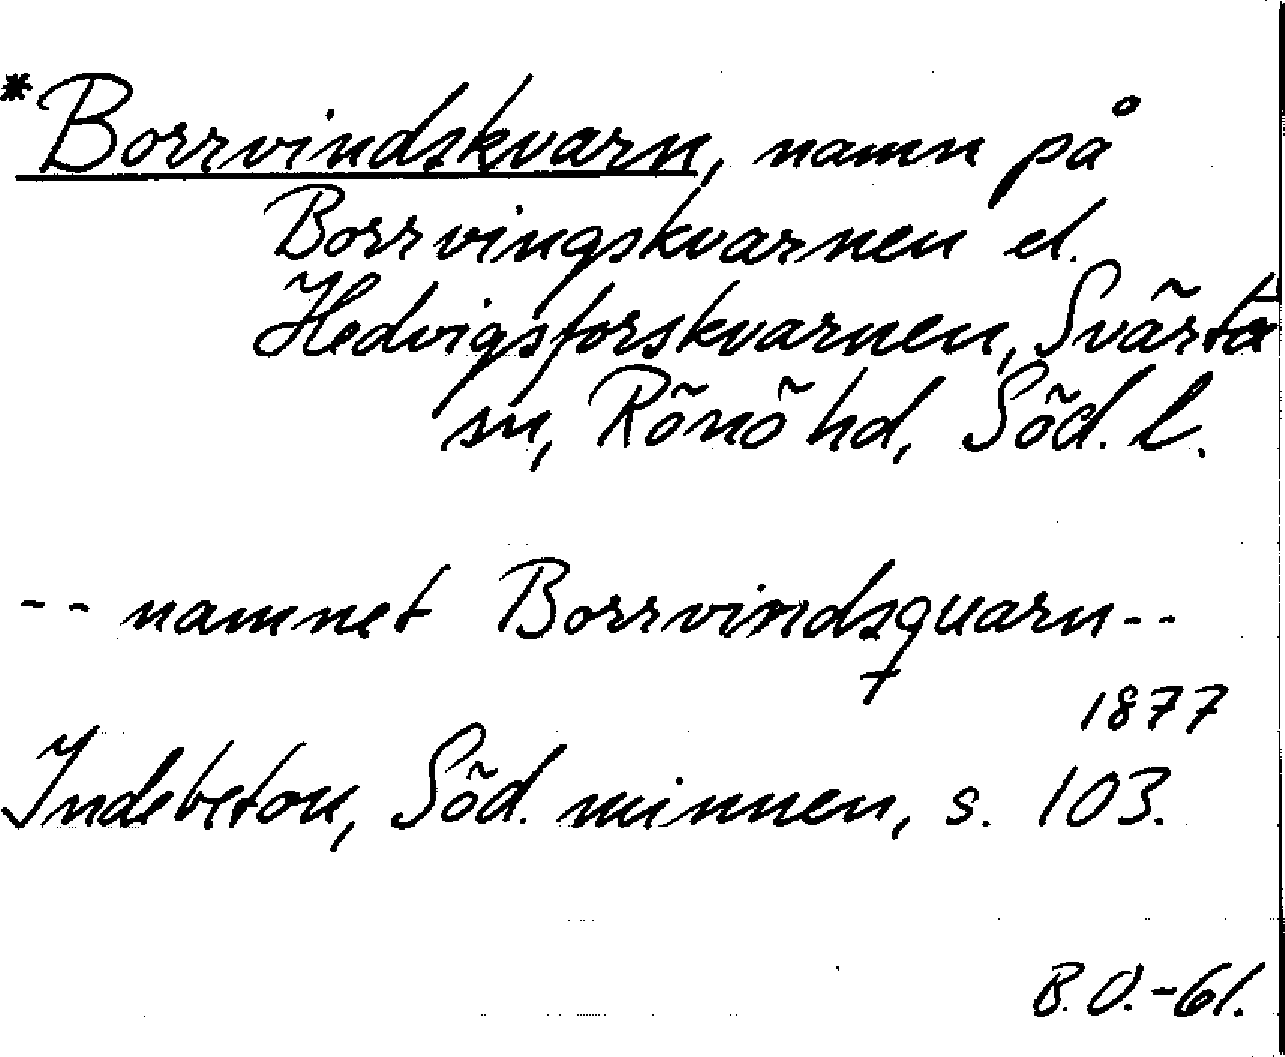 *Borrvindskvarn, namn på
Borrvingskvarnen el.
Hedvigsforskvarnen, Svärta
sn, Rönö hd, Söd. l.
-- namnet Borrvindsquarn --
1877
Indebetou, Söd. minnen, s. 103.
B.O.-61.